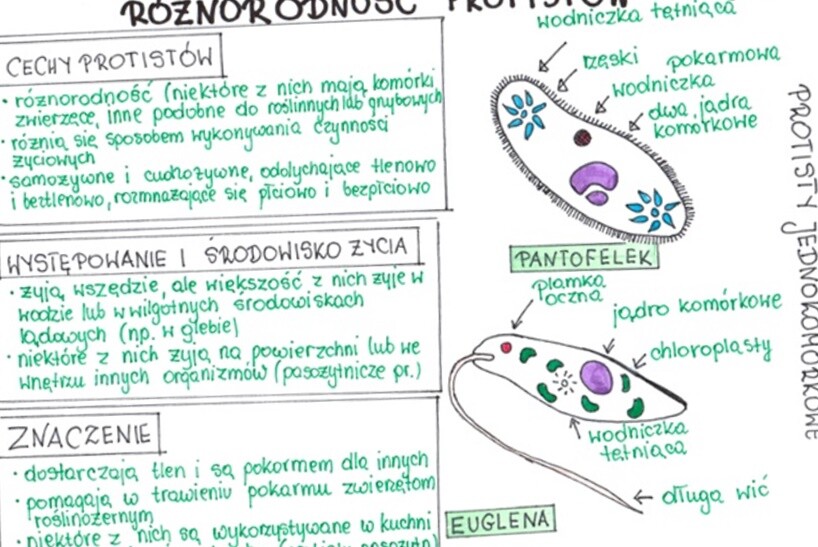 RÓŻNORODNOŚĆ PROTISTÓW
CECHY PROTISTÓW
• różnorodność (niektóre z nich mają komórki
zwierzęce, inne podobne do roślinnych lub grzybowych
• różnią się sposobem wykonywania czynności
życiowych
• samożywne i cudzożywne, oddychające tlenowo
i beztlenowo, rozmnażające się płciowo i bezpłciowo
WYSTĘPOWANIE I ŚRODOWISKO ŻYCIA
• żyją wszędzie, ale większość z nich żyje w
wodzie lub w wilgotnych środowiskach
lądowych (np. w glebie)
• niektóre z nich żyją na powierzchni lub we
wnętrzu innych organizmów (pasożytnicze pr.)
ZNACZENIE
• dostarczają tlen i są pokarmem dla innych
• pomagają w trawieniu pokarmu zwierzętom
roślinożernym
• niektóre z nich są wykorzystywane w kuchni
wodniczka tętniąca
rzęski
pokarmowa
wodniczka
dwa jądra
komórkowe
PANTOFELEK
plamka
oczna
jądro komórkowe
chloroplasty
wodniczka
tętniąca
długa wić
EUGLENA
PROTISTY JEDNOKOMÓRKOWE